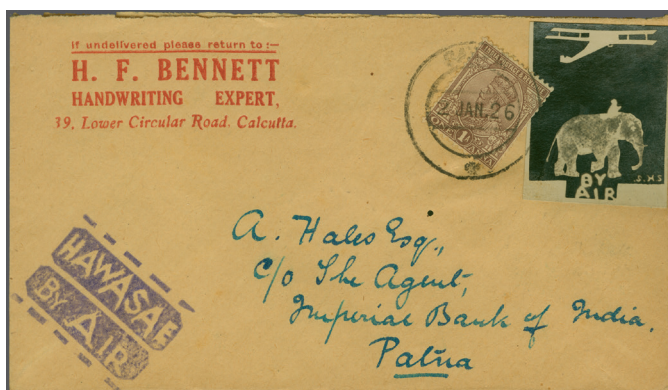 If undelivered please return to :—
H. F. BENNETT
HANDWRITING EXPERT,
39, Lower Circular Road. Calcutta.
JAN.26
BY
AIR
S.H.S
A. Hales Esq.,
c/o The Agent,
Imperial Bank of India,
Patna
HAWASAE
BY AIR